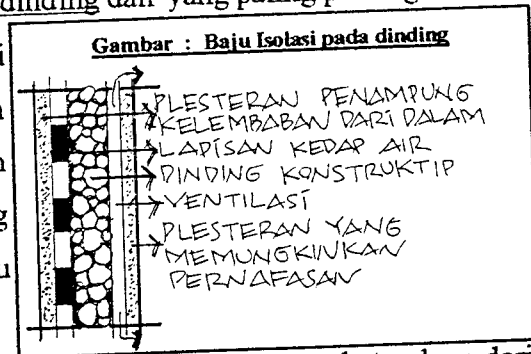 dinding dan yang paling
Gambar : Baju Isolasi pada dinding
PLESTERAN PENAMPUNG
KELEMBABAN DARI DALAM
LAPISAN KEDAP AIR
DINDING KONSTRUKTIP
VENTILASI
PLESTERAN YANG
MEMUNGKINKAN
PERNAFASAN
dari